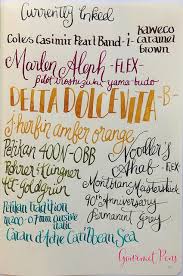 Currently Inked
Coles Casimir Pearl Band-i-
Kaweco
Caramel
Brown
Marlen Aleph -FLEX-
pilot iroshizuku yama budo
DELTA DOLCEVITA -B-
J herbin amber orange
Pelikan 400N-OBB
Rohrer & Klingner
Alt-goldgrün
Noodler's
Ahab -FLEX-
Montblanc Meisterstück
90th Anniversary
Permanent Grey
Pelikan tradition
m200 - 0.7mm cursive
italic
Caran d'Ache Caribbean Sea
Gourmet Pens